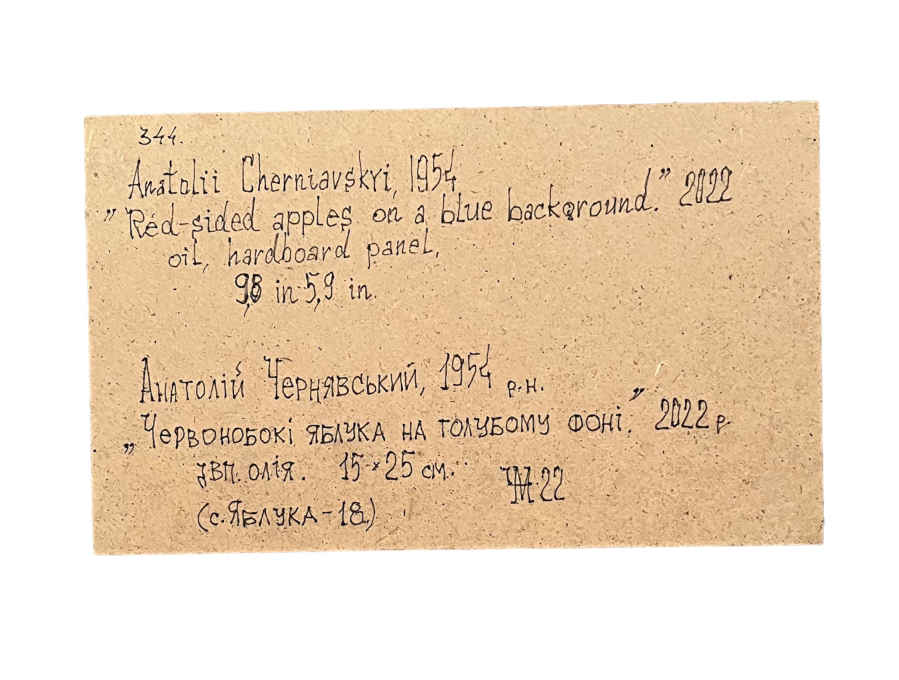 344.
Anatolii Cherniavskyi, 1954
"Red-sided apples on a blue background." 2022
oil, hardboard panel,
9,8 in·5,9 in.
Анатолій Чернявський, 1954 р.н.
„Червонобокі яблука на голубому фоні." 2022 р
двп. олія. 15×25 см.
22
(с. Яблука-18)